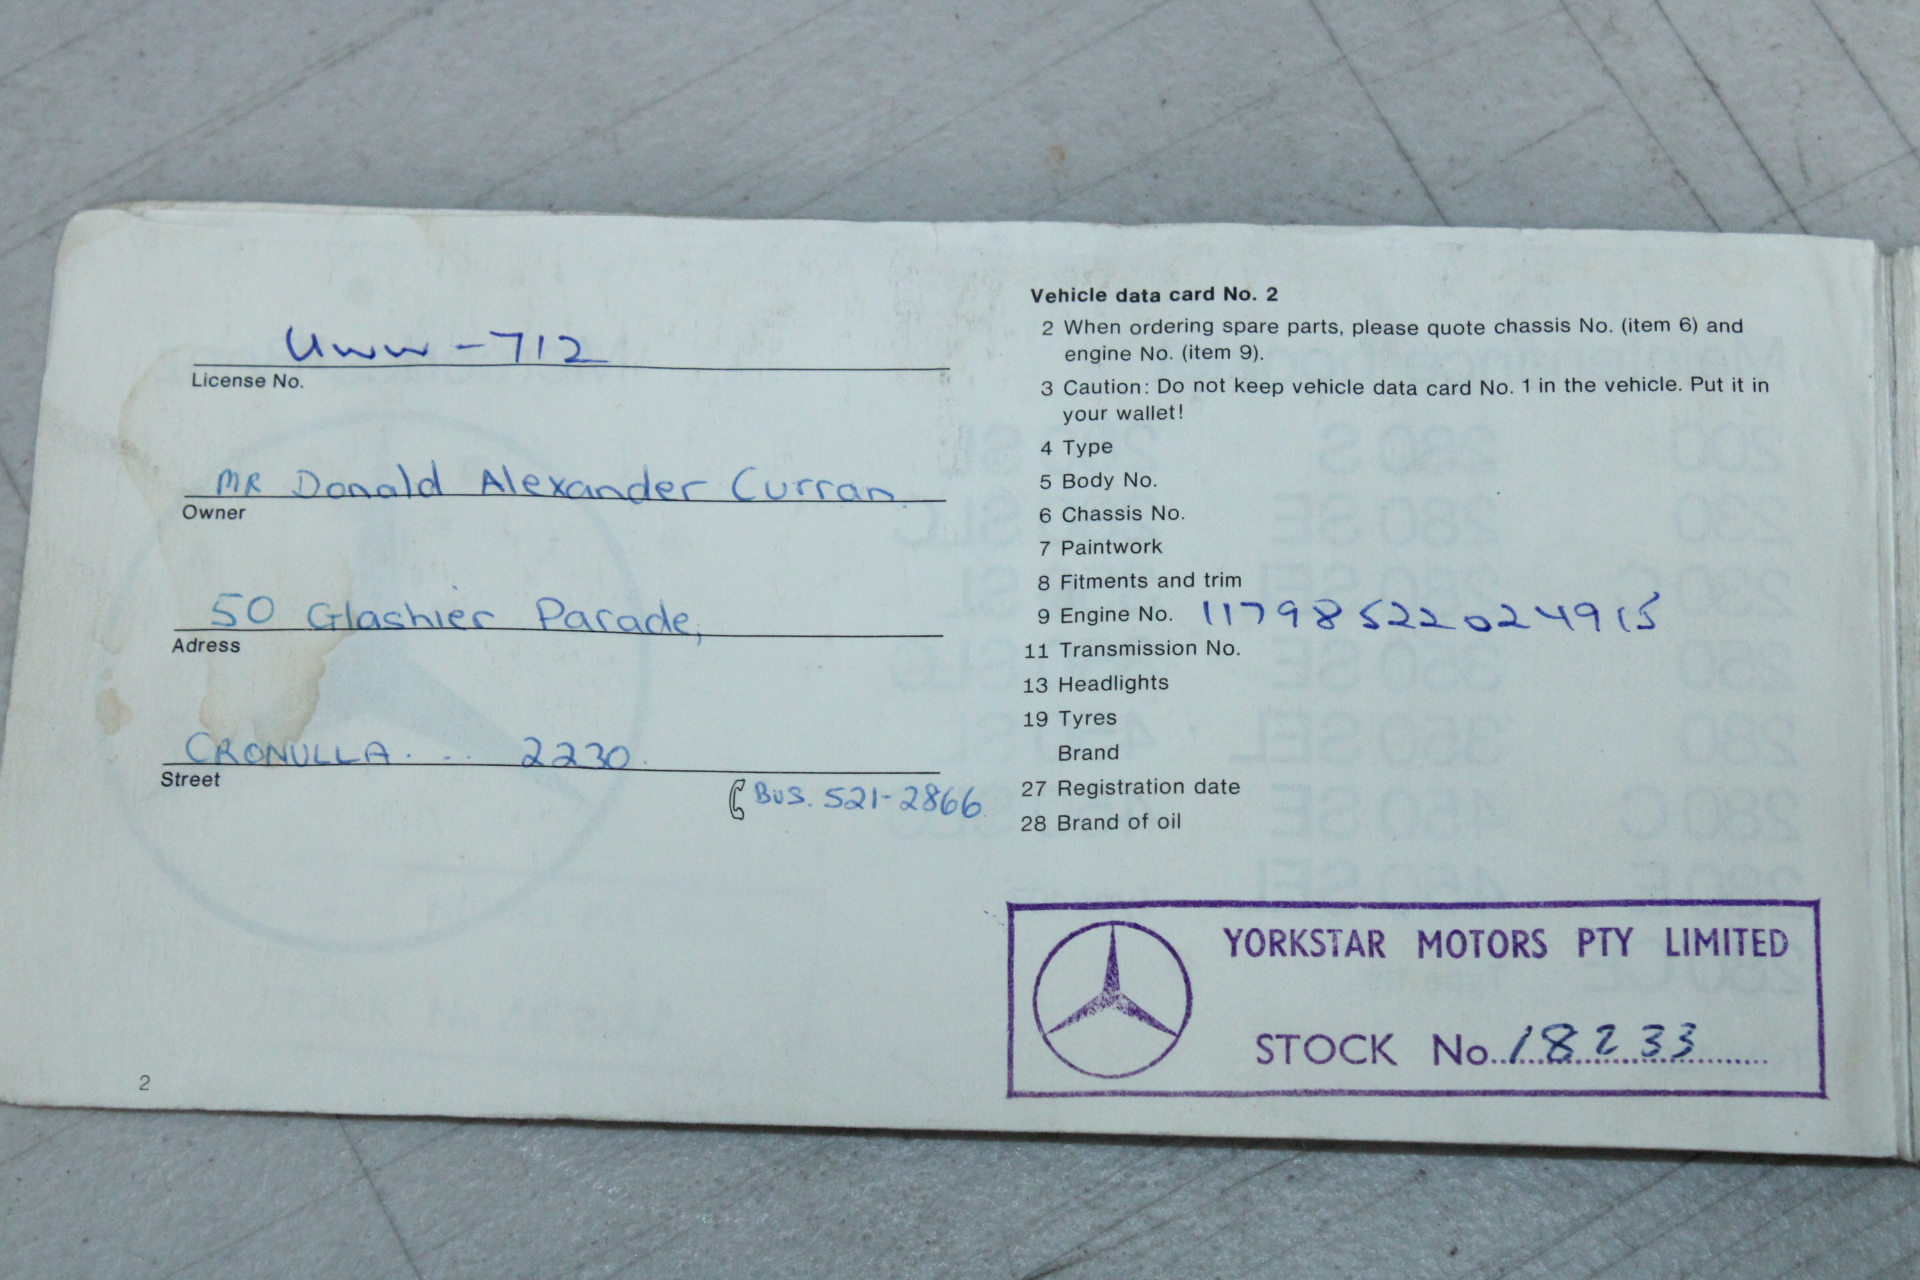 UWW-712
License No.
MR Donald Alexander Curran
Owner
50 Glashier Parade,
Adress
CRONULLA. ... 2230.
Street
Bus. 521-2866.
2
Vehicle data card No. 2
2 When ordering spare parts, please quote chassis No. (item 6) and
engine No. (item 9).
3 Caution: Do not keep vehicle data card No. 1 in the vehicle. Put it in
your wallet!
4 Type
5 Body No.
6 Chassis No.
7 Paintwork
8 Fitments and trim
9 Engine No. 11798522024915
11 Transmission No.
13 Headlights
19 Tyres
Brand
27 Registration date
28 Brand of oil
YORKSTAR MOTORS PTY LIMITED
STOCK No. 18233